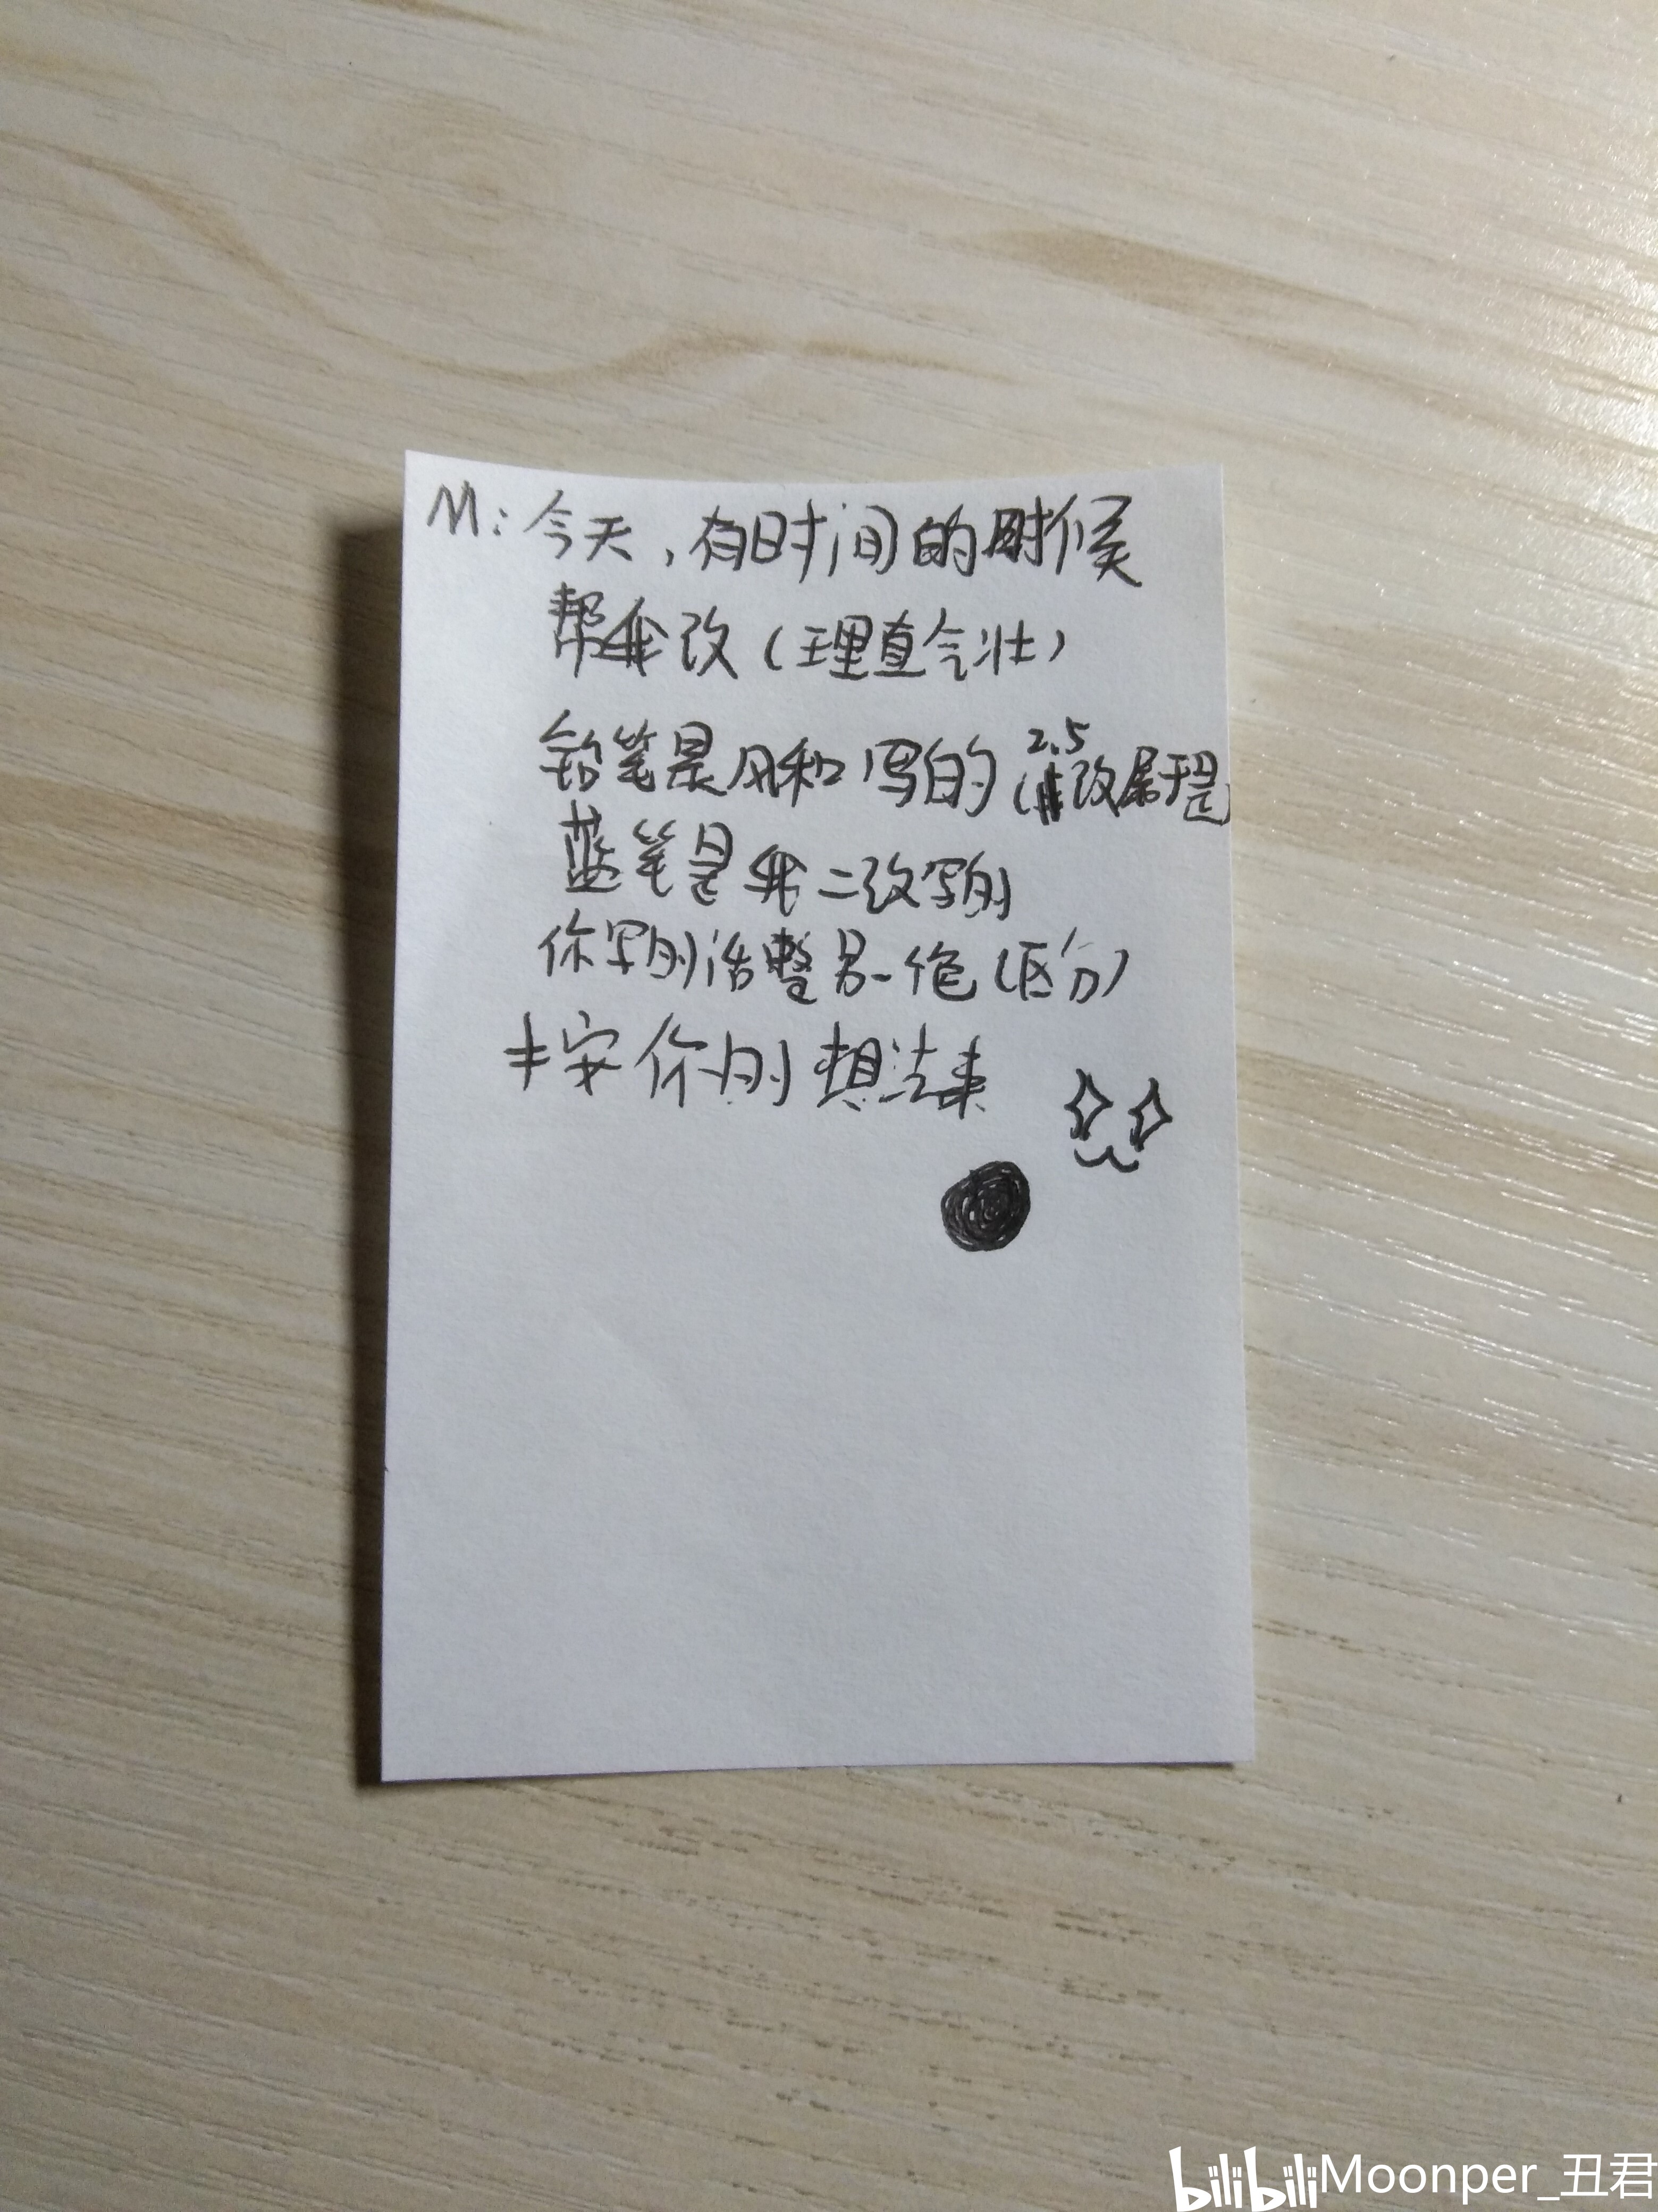 M：今天，有时间的时候
帮我改（理直气壮）
铅笔是风和写的（2.5改尾于是
蓝笔是我二改写的
你写的话整另一个色（区分）
按你的想法来
bilibili Moonper_丑君